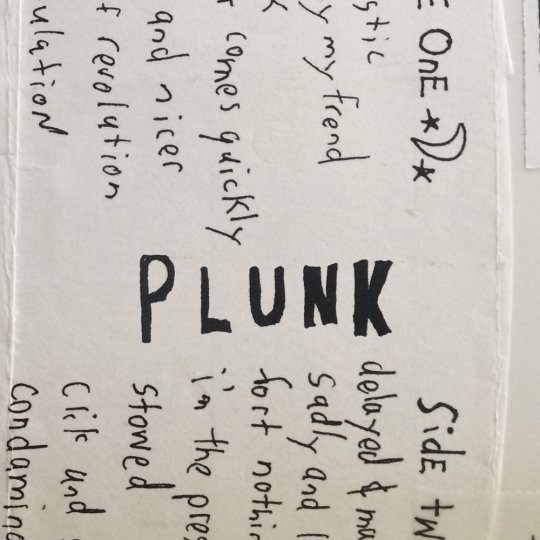 E OnE
stic
y my frend
r comes quickly
and nicer
f revolution
ulatioN
PLUNK
SidE tw
delayed & mu
sadly and
fort nothin
in the pres
stowed
Clik and
Condamin